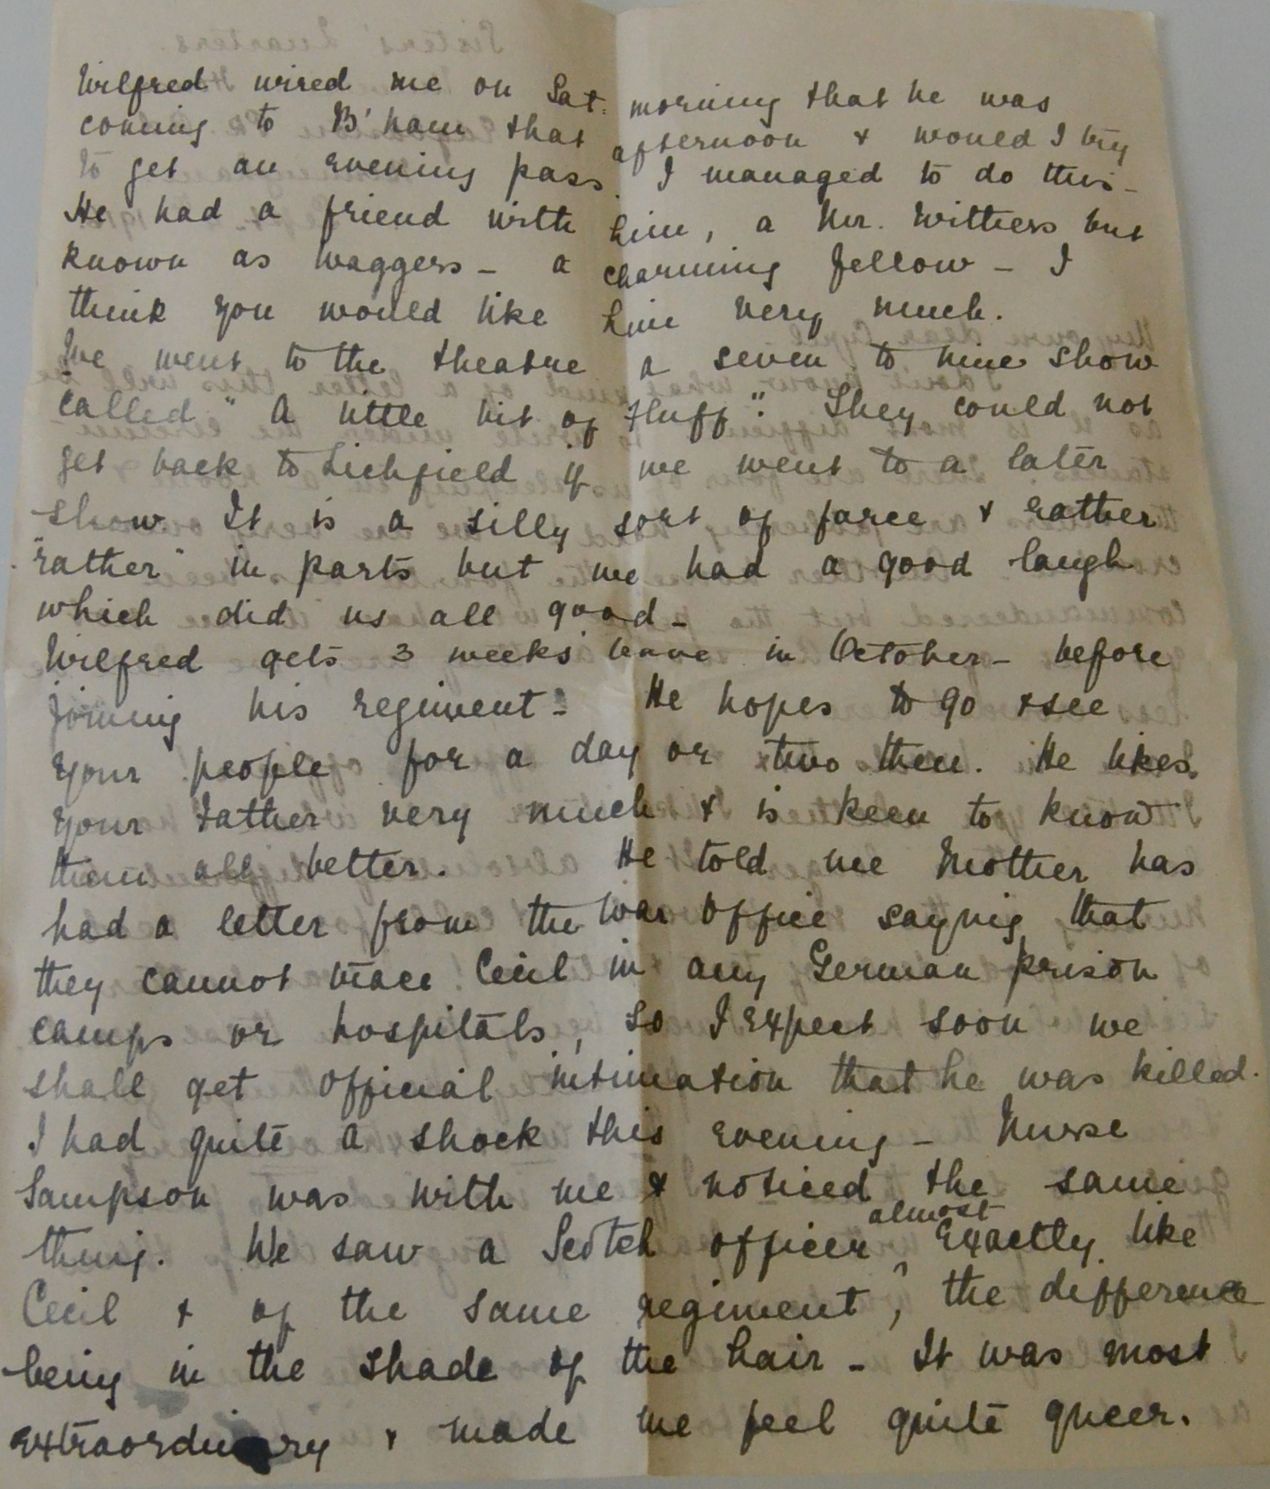 Wilfred wired me on Sat. morning that he was
coming to B'ham that afternoon & would I try
to get an evening pass. I managed to do this -
He had a friend with him, a Mr. Withers but
known as Waggers - a charming fellow - I
think you would like him very much.
We went to the theatre a seven to nine show
called "A little bit of Fluff". They could not
get back to Lichfield if we went to a later
show. It is a silly sort of farce & rather
"rather" in parts but we had a good laugh
which did us all good -
Wilfred gets 3 weeks' leave in October - before
joining his regiment - He hopes to go & see
your people for a day or two then. He likes
your Father very much & is keen to know
them all better. He told me Mother has
had a letter from the War Office saying that
they cannot trace Cecil in any German prison
camps or hospitals, so I expect soon we
shall get official intimation that he was killed.
I had quite a shock this evening - Nurse
Sampson was with me & noticed the same
thing. We saw a Scotch officer almost exactly like
Cecil & of the same regiment, the difference
being in the shade of the hair - It was most
extraordinary & made me feel quite queer.